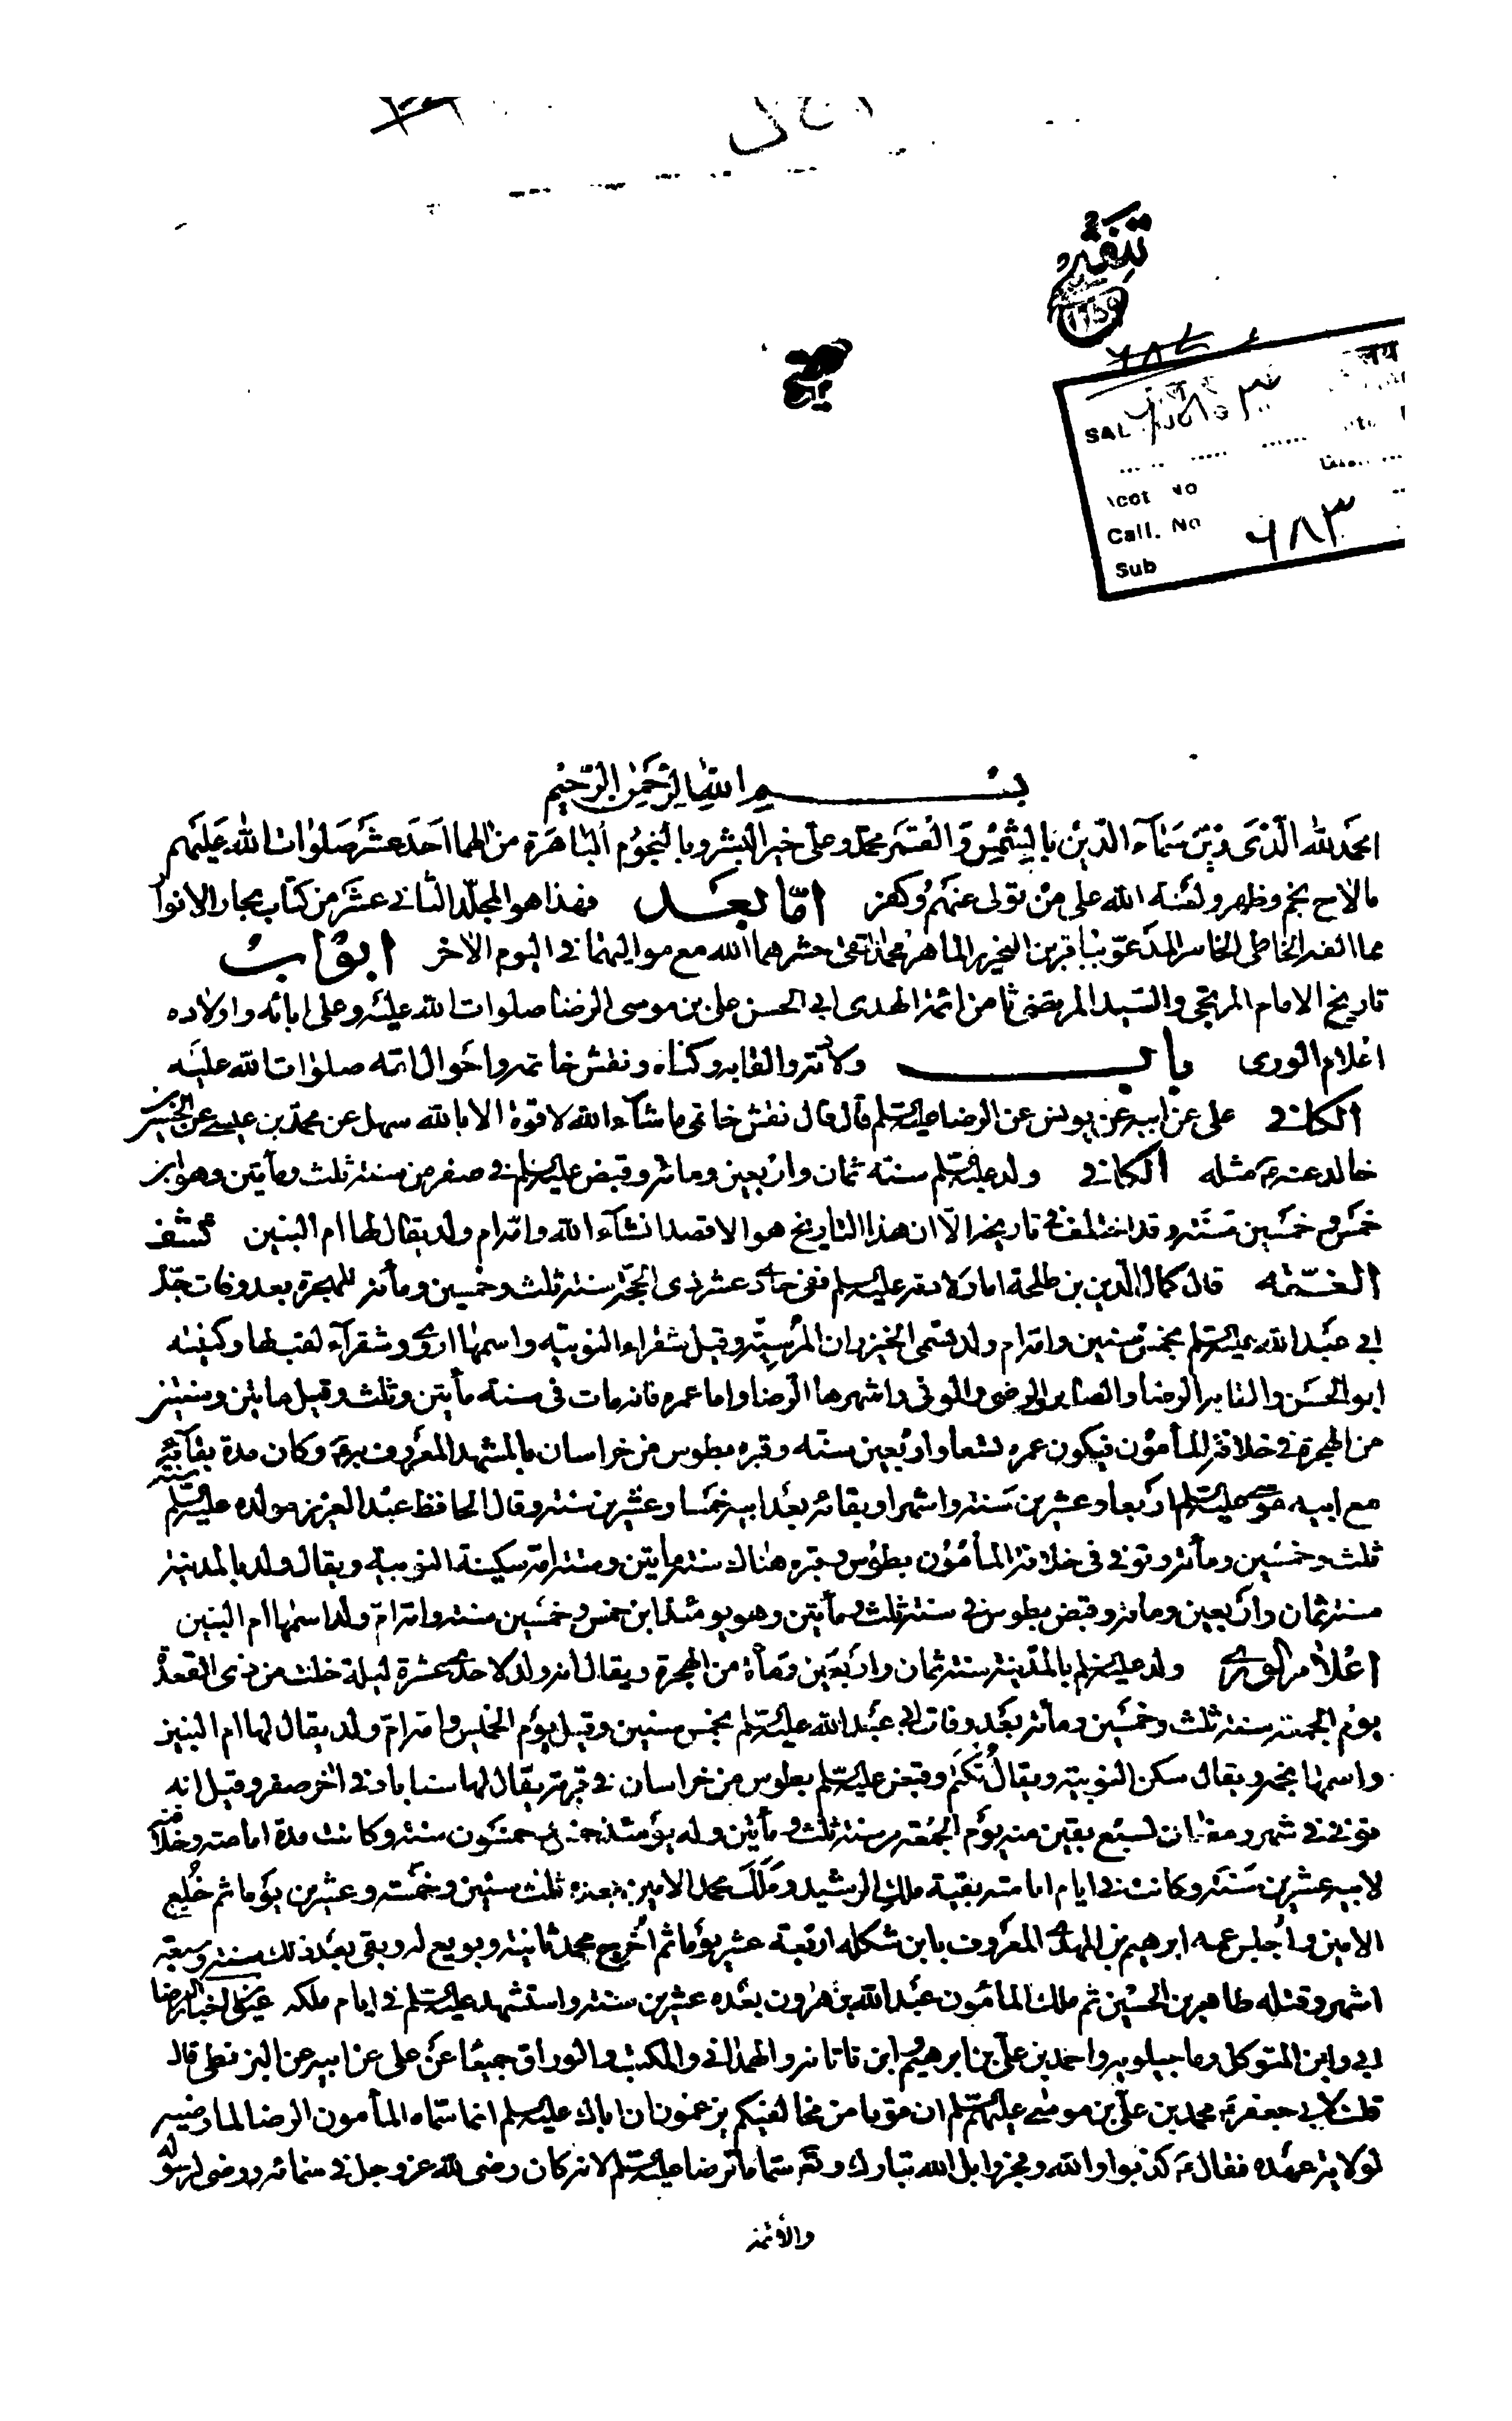 SAL
Acct No
Call. No ٦٨٣
Sub
بسم الله الرحمن الرحيم
الحمد لله الذى زين سماء الدين بالشمس والقمر محمد وعلى خير البشر وبالنجوم الباهرة من الهما احد عشر صلوات الله عليهم
ما لاح نجم وظهر ولعنة الله على من تولى عنهم وكفر اما بعد فهذا هو المجلد الثانى عشر من كتاب بحار الانوار
مما الفه الخاطى الخاسر المدعو بباقر بن النحرير الماهر محمد تقى حشرهما الله مع مواليهما فى اليوم الاخر ابواب
تاريخ الامام المرتجى والسيد المرتضى ثامن ائمة الهدى ابى الحسن على بن موسى الرضا صلوات الله عليه وعلى ابائه واولاده
اعلام الورى باب ولادته والقابه وكناه ونقش خاتمه واحوال امه صلوات الله عليه
الكافى على عن ابيه عن يونس عن الرضا عليه السلم قال قال نقش خاتمى ما شاء الله لا قوة الا بالله سهل عن محمد بن عيسى عن الحسين بن
خالد عنه م مثله الكافى ولد عليه السلم سنة ثمان واربعين ومائة وقبض عليه السلم فى صفر من سنة ثلث ومأتين وهو ابن
خمس وخمسين سنة وقد اختلف فى تاريخه الا ان هذا التاريخ هو الاقصد انشاء الله وامه ام ولد يقال لها ام البنين كشف
الغمة قال كمال الدين بن طلحة اما ولادته عليه السلم ففى حادى عشر ذى الحجة سنة ثلث وخمسين ومأئة للهجرة بعد وفات جده
ابى عبد الله عليه السلم بخمس سنين وامه ام ولد تسمى الخيزران المرسية وقيل شقراء النوبية واسمها اروى وشقراء لقب لها وكنيته
ابو الحسن والقابه الرضا والصابر والرضى والوفى واشهرها الرضا واما عمره فانه مات فى سنة مأتين وثلث وقيل مائتين وسنتين
من الهجرة فى خلافة المأمون فيكون عمره تسعا واربعين سنة وقبره بطوس من خراسان بالمشهد المعروف به م وكان مدة بقائه
مع ابيه موسى عليه السلم اربعا وعشرين سنة واشهرا وبقائه بعد ابيه خمسا وعشرين سنة وقال الحافظ عبد العزيز مولده عليه السلم سنة
ثلث وخمسين ومأئة وتوفى فى خلافة المأمون بطوس وقبره هناك سنة مأتين وستة امه سكينة النوبية ويقال ولد بالمدينة
سنة ثمان واربعين ومائة وقبض بطوس فى سنة ثلث ومأتين وهو يومئذ ابن خمس وخمسين سنة وامه ام ولد اسمها ام البنين
اعلام الورى ولد عليه السلم بالمدينة سنة ثمان واربعين ومأة من الهجرة ويقال انه ولد لاحدى عشرة ليلة خلت من ذى القعدة
يوم الجمعة سنة ثلث وخمسين ومأئة بعد وفات ابى عبد الله عليه السلم بخمس سنين وقيل يوم الخميس وامه ام ولد يقال لها ام البنين
واسمها نجمه ويقال سكن النوبية ويقال تكتم وقبض عليه السلم بطوس من خراسان فى قرية يقال لها سناباد فى اخر صفر وقيل انه
توفى فى شهر رمضان لسبع بقين منه يوم الجمعة من سنة ثلث ومأتين وله يومئذ خمس وخمسون سنة وكانت مدة امامته وخلافته
لابيه عشرين سنة وكانت فى ايام امامته بقية ملك الرشيد وملك محمد الامين بعده ثلث سنين وخمسة وعشرين يوما ثم خلع
الامين واجلس عمه ابرهيم بن المهدى المعروف بابن شكله اربعة عشر يوما ثم اخرج محمد ثانية وبويع له وبقى بعد ذلك سنة وسبعة
اشهر وقتله طاهر بن الحسين ثم ملك المأمون عبد الله بن هرون بعده عشرين سنة واستشهد عليه السلم فى ايام ملكه عيون اخبار الرضا
ابى وابن المتوكل وماجيلويه واحمد بن على بن ابرهيم وابن ناتانه والهمدانى والمكتب والوراق جميعا عن على عن ابيه عن البزنطى قال
قلت لابى جعفر م محمد بن على بن موسى عليهم السلم ان قوما من مخالفيكم يزعمون ان اباك عليه السلم انما سماه المأمون الرضا لما رضيه
لولاية عهده فقال م كذبوا والله وفجروا بل الله تبارك وتعالى سماه الرضا عليه السلم لانه كان رضى لله عز وجل فى سمائه ورضى لرسوله
والائمة